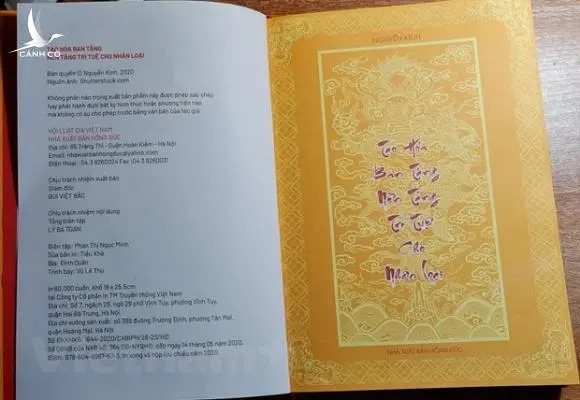 CÁNH CÒ
TẠO HÓA BAN TẶNG
NỀN TẢNG TRÍ TUỆ CHO NHÂN LOẠI
Bản quyền © Nguyễn Kính, 2020
Nguồn ảnh: Shutterstock.com
Không phần nào trong xuất bản phẩm này được phép sao chép
hay phát hành dưới bất kỳ hình thức hoặc phương tiện nào
mà không có sự cho phép trước bằng văn bản của tác giả.
HỘI LUẬT GIA VIỆT NAM
NHÀ XUẤT BẢN HỒNG ĐỨC
Địa chỉ: 65 Tràng Thi - Quận Hoàn Kiếm - Hà Nội
Email: nhaxuatbanhongduc@yahoo.com
Điện thoại: 04.3 9260024 Fax: 04.3 9260031
Chịu trách nhiệm xuất bản
Giám đốc
BÙI VIỆT BẮC
Chịu trách nhiệm nội dung
Tổng biên tập
LÝ BÁ TOÀN
Biên tập: Phan Thị Ngọc Minh
Sửa bản in: Tiểu Khê
Bìa: Đình Quân
Trình bày: Vũ Lê Thư
In 60.000 cuốn, khổ 18 x 25.5cm
tại Công ty Cổ phần In TM Truyền thông Việt Nam
Địa chỉ: Số 7, ngách 26, ngõ 29 phố Vĩnh Tuy, phường Vĩnh Tuy,
quận Hai Bà Trưng, Hà Nội
Địa chỉ xưởng sản xuất: số 389 đường Trương Định, phường Tân Mai,
quận Hoàng Mai, Hà Nội
Số ĐKXB: 1644-2020/CXBIPH/28-23/HĐ
cấp ngày 14 tháng 05 năm 2020.
In xong và nộp lưu chiểu năm 2020.
NGUYỄN KÍNH
Tạo Hóa
Ban Tặng
Nền Tảng
Trí Tuệ
Cho
Nhân Loại
NHÀ XUẤT BẢN HỒNG ĐỨC